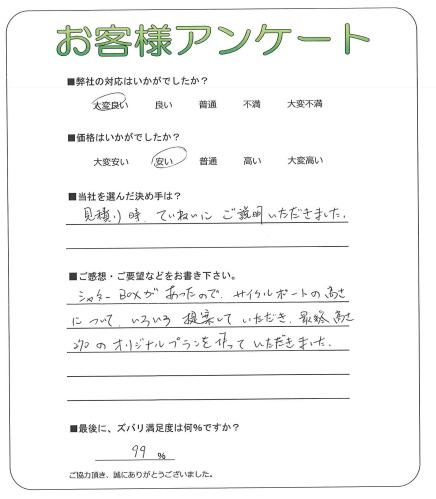 お客様アンケート
■弊社の対応はいかがでしたか?
大変良い 良い 普通 不満 大変不満
■価格はいかがでしたか?
大変安い 安い 普通 高い 大変高い
■当社を選んだ決め手は?
見積り時、ていねいにご説明いただきました。
■ご感想・ご要望などをお書き下さい。
シャッターBOXがあったので、サイクルポートの高さ
について、いろいろ提案していただき、最終高さ
270のオリジナルプランを作っていただきました。
■最後に、ズバリ満足度は何%ですか?
99 %
ご協力頂き、誠にありがとうございました。